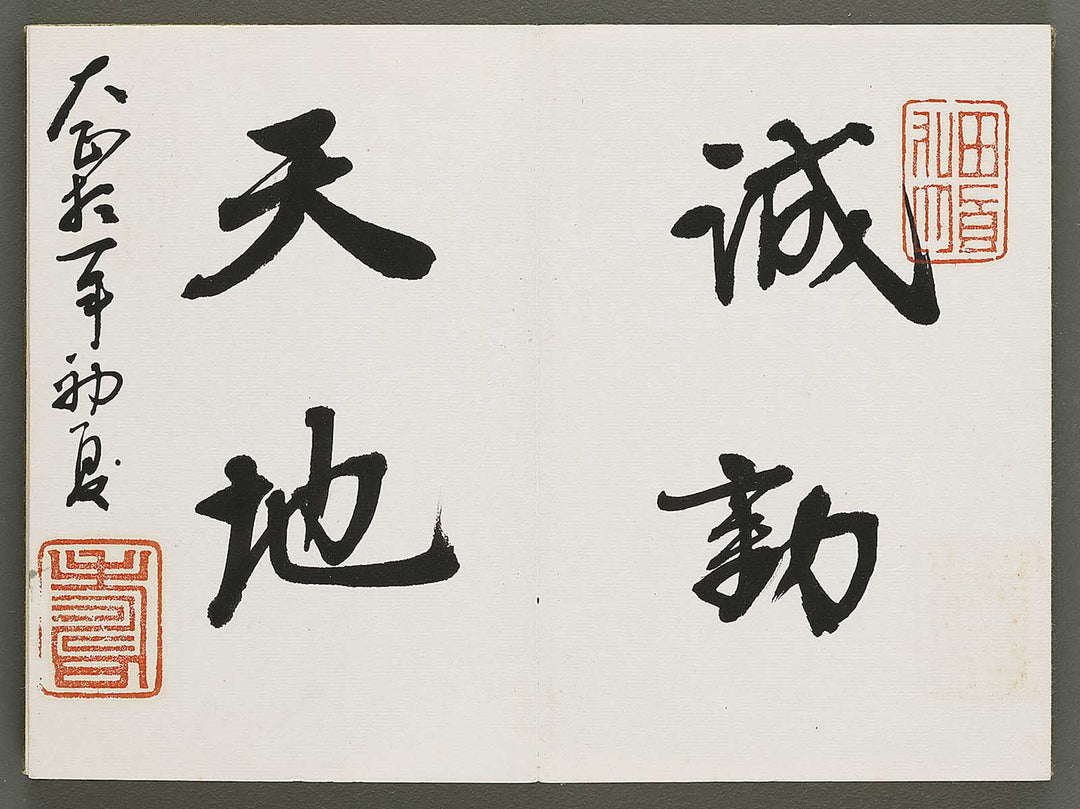 誠動
天地
大正拾一年初夏